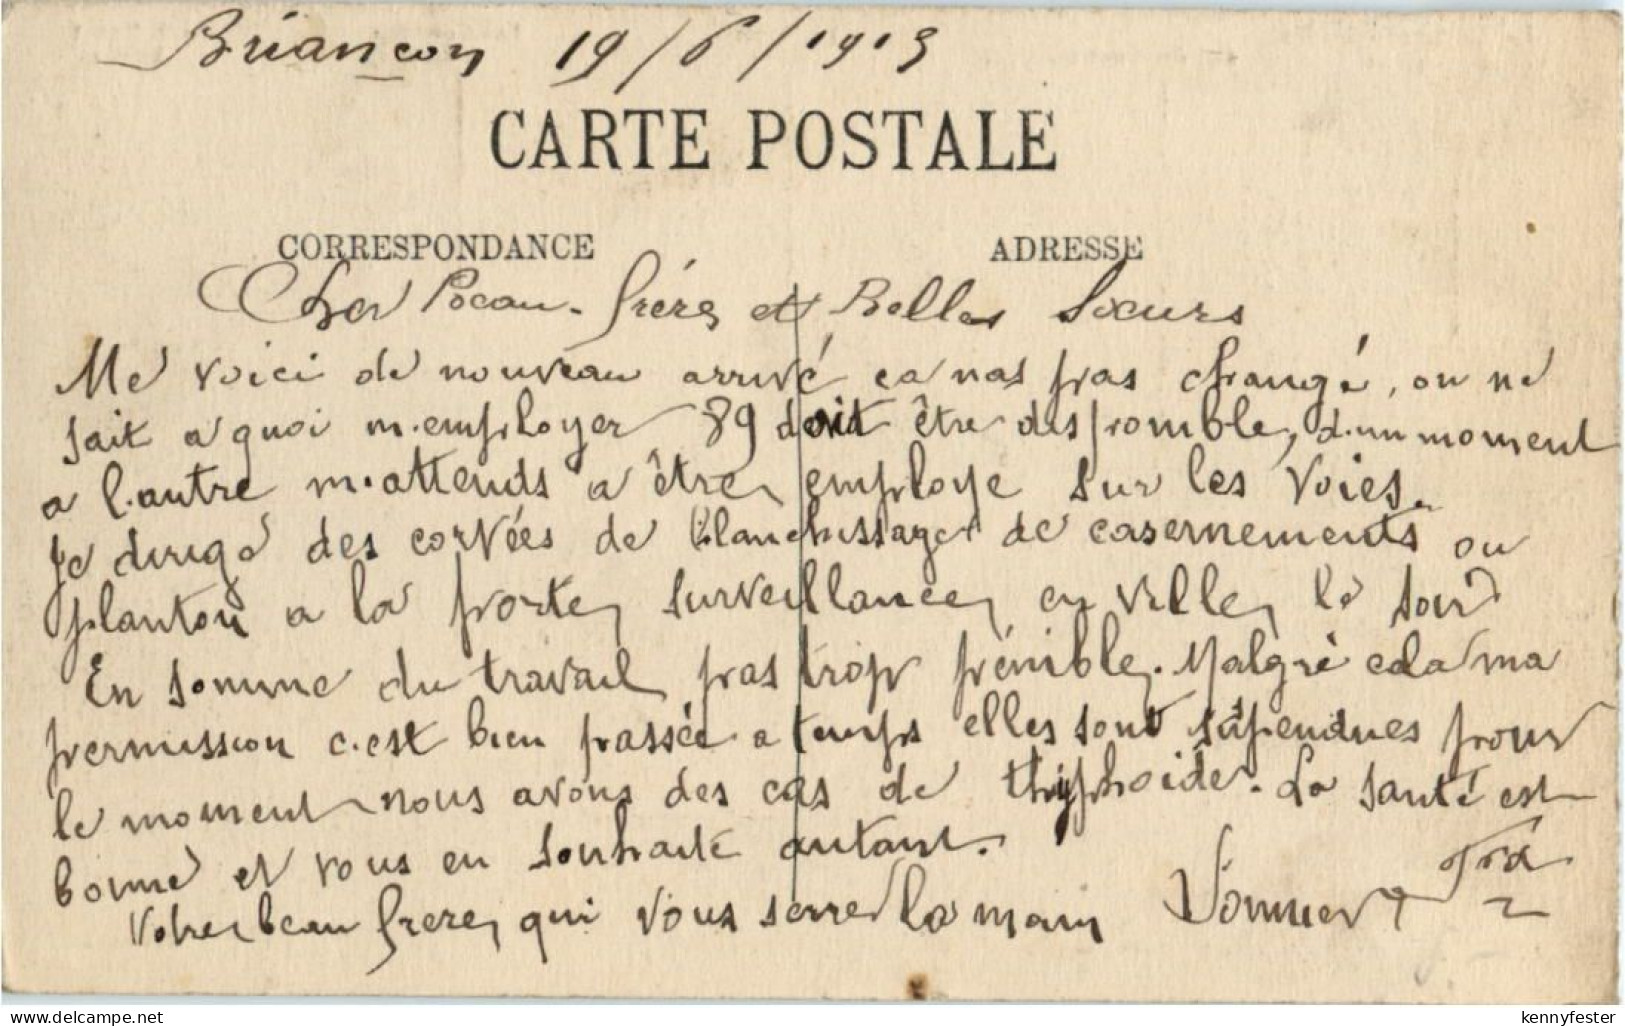 Briançon 19/6/1913
CARTE POSTALE
CORRESPONDANCE
ADRESSE
Cher Beau-frère et Belles Sœurs
Me voici de nouveau arrivé ca nas pas changé, on ne
sait a quoi m'employer 89 doit être disponible, d'un moment
a l'autre m'attends a être employe sur les voies.
Je dirige des corvées de blanchissage de casernements ou
planton a la porte, surveillance, en ville, le soir
En somme du travail pas trop pénible. Malgré cela ma
permission c'est bien passée a temps elles sont suspendues pour
le moment nous avons des cas de thyphoide. La santé est
bonne et vous en souhaite autant.
Votre beau frere, qui vous serre la main Vonnier
kennyfester
www.delcampe.net